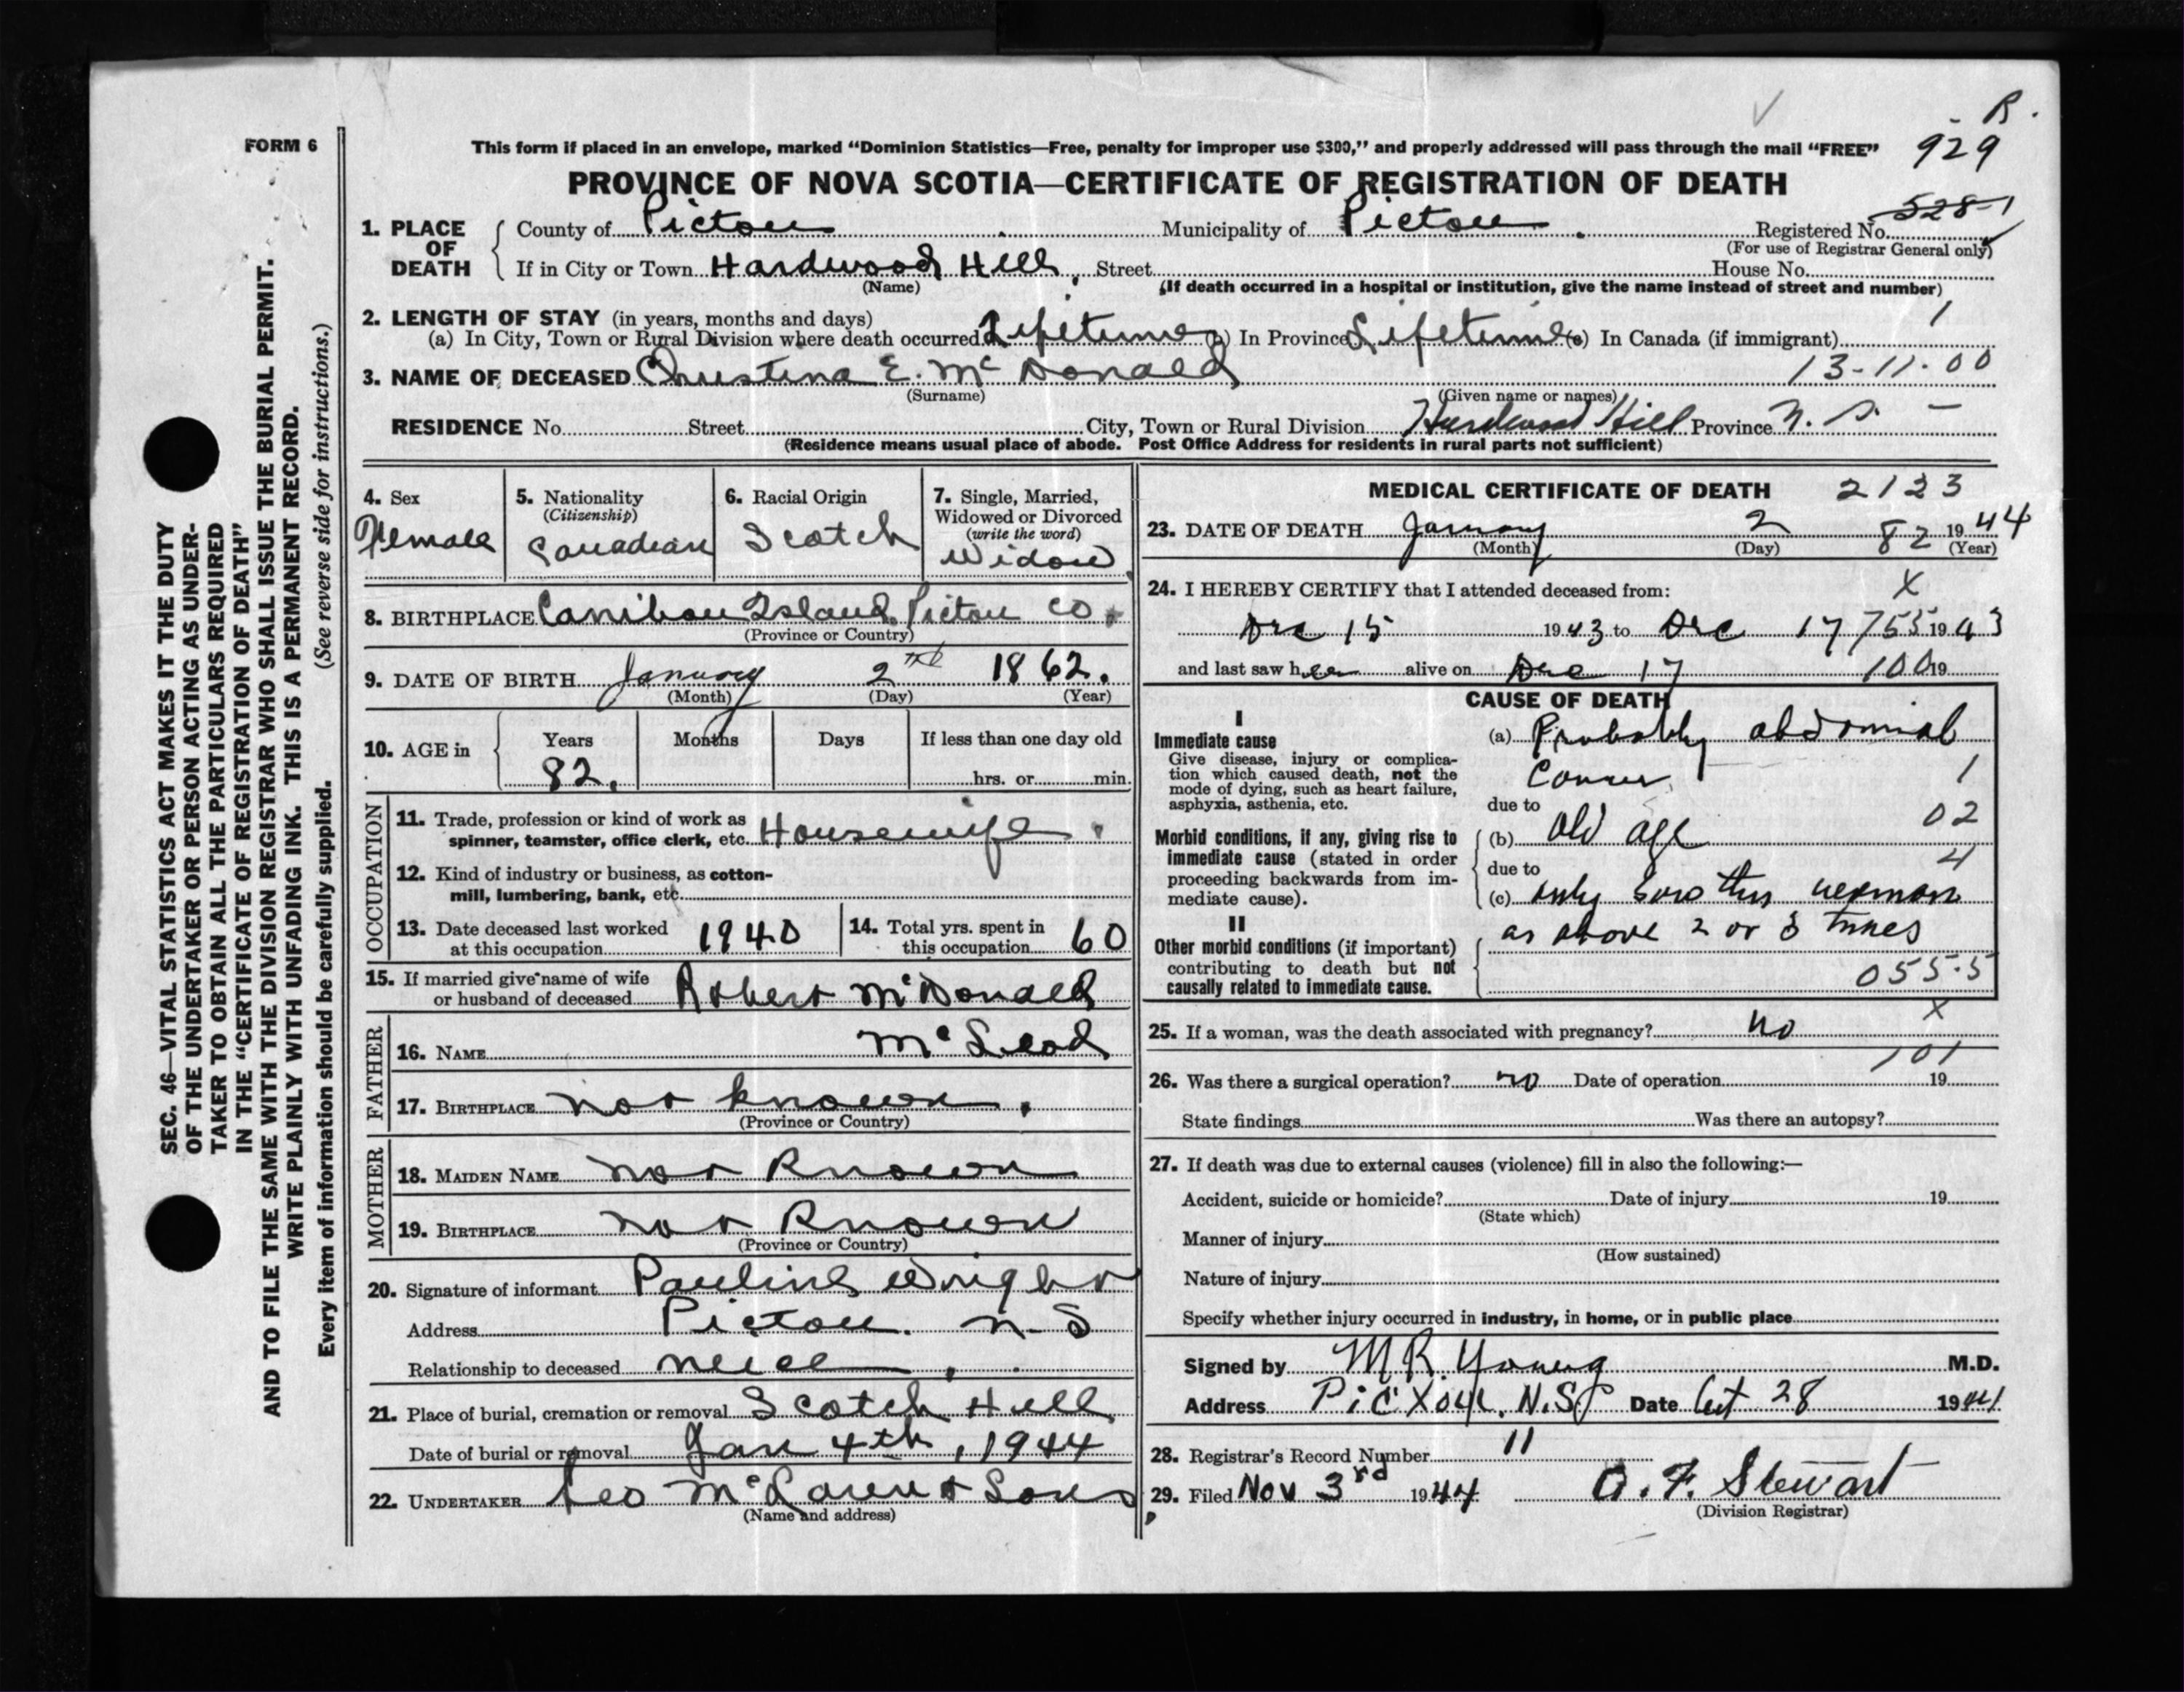 R.
929
FORM 6
This form if placed in an envelope, marked "Dominion Statistics—Free, penalty for improper use $300," and properly addressed will pass through the mail "FREE"
PROVINCE OF NOVA SCOTIA—CERTIFICATE OF REGISTRATION OF DEATH
528-1
1. PLACE OF DEATH { County of Pictou Municipality of Pictou Registered No.
(For use of Registrar General only)
If in City or Town Hardwood Hill, Street House No.
(Name) (If death occurred in a hospital or institution, give the name instead of street and number)
2. LENGTH OF STAY (in years, months and days) 1
(a) In City, Town or Rural Division where death occurred Lifetime (b) In Province Lifetime (c) In Canada (if immigrant)
3. NAME OF DECEASED Christina E. McDonald 13-11-00
(Surname) (Given name or names)
RESIDENCE No. Street City, Town or Rural Division Hardwood Hill Province N. S. —
(Residence means usual place of abode. Post Office Address for residents in rural parts not sufficient)
4. Sex
Female
5. Nationality
(Citizenship)
Canadian
6. Racial Origin
Scotch
7. Single, Married,
Widowed or Divorced
(write the word)
Widow
8. BIRTHPLACE Caribou Island, Pictou Co.
(Province or Country)
9. DATE OF BIRTH January 2nd 1862.
(Month) (Day) (Year)
10. AGE in { Years Months Days If less than one day old
82. hrs. or min.
OCCUPATION
11. Trade, profession or kind of work as
spinner, teamster, office clerk, etc. Housewife.
12. Kind of industry or business, as cotton-
mill, lumbering, bank, etc.
13. Date deceased last worked
at this occupation 1940
14. Total yrs. spent in
this occupation 60
15. If married give name of wife
or husband of deceased Robert McDonald
FATHER
16. NAME McLeod
17. BIRTHPLACE not known.
(Province or Country)
MOTHER
18. MAIDEN NAME not Known
19. BIRTHPLACE not Known
(Province or Country)
20. Signature of informant Pauline Wright
Address Pictou. N. S
Relationship to deceased neice,
21. Place of burial, cremation or removal Scotch Hill
Date of burial or removal Jan 4th, 1944
22. UNDERTAKER Leo McLaren & Sons
(Name and address)
MEDICAL CERTIFICATE OF DEATH 2123
23. DATE OF DEATH January 2 1944
(Month) (Day) 82 (Year)
24. I HEREBY CERTIFY that I attended deceased from: X
Dec 15 1943 to Dec 17 755 1943
and last saw her alive on Dec 17 100 19
CAUSE OF DEATH
I
Immediate cause
Give disease, injury or complica-
tion which caused death, not the
mode of dying, such as heart failure,
asphyxia, asthenia, etc.
(a) Probably abdominal
Cancer 1
due to 02
Morbid conditions, if any, giving rise to
immediate cause (stated in order
proceeding backwards from im-
mediate cause).
(b) Old age
due to 4
(c) only saw this woman
as above 2 or 3 times
II
Other morbid conditions (if important)
contributing to death but not
causally related to immediate cause.
055.5
25. If a woman, was the death associated with pregnancy? no X
101
26. Was there a surgical operation? no Date of operation 19
State findings Was there an autopsy?
27. If death was due to external causes (violence) fill in also the following:—
Accident, suicide or homicide? Date of injury 19
(State which)
Manner of injury
(How sustained)
Nature of injury
Specify whether injury occurred in industry, in home, or in public place
Signed by M R. Young M.D.
Address Pictou, N.S. Date Oct 28 1944
28. Registrar's Record Number 11
29. Filed Nov 3rd 1944 A. F. Stewart
(Division Registrar)
SEC. 46—VITAL STATISTICS ACT MAKES IT THE DUTY
OF THE UNDERTAKER OR PERSON ACTING AS UNDER-
TAKER TO OBTAIN ALL THE PARTICULARS REQUIRED
IN THE "CERTIFICATE OF REGISTRATION OF DEATH"
AND TO FILE THE SAME WITH THE DIVISION REGISTRAR WHO SHALL ISSUE THE BURIAL PERMIT.
WRITE PLAINLY WITH UNFADING INK. THIS IS A PERMANENT RECORD.
Every item of information should be carefully supplied. (See reverse side for instructions.)